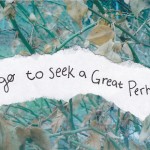 go to seek a Great Perh